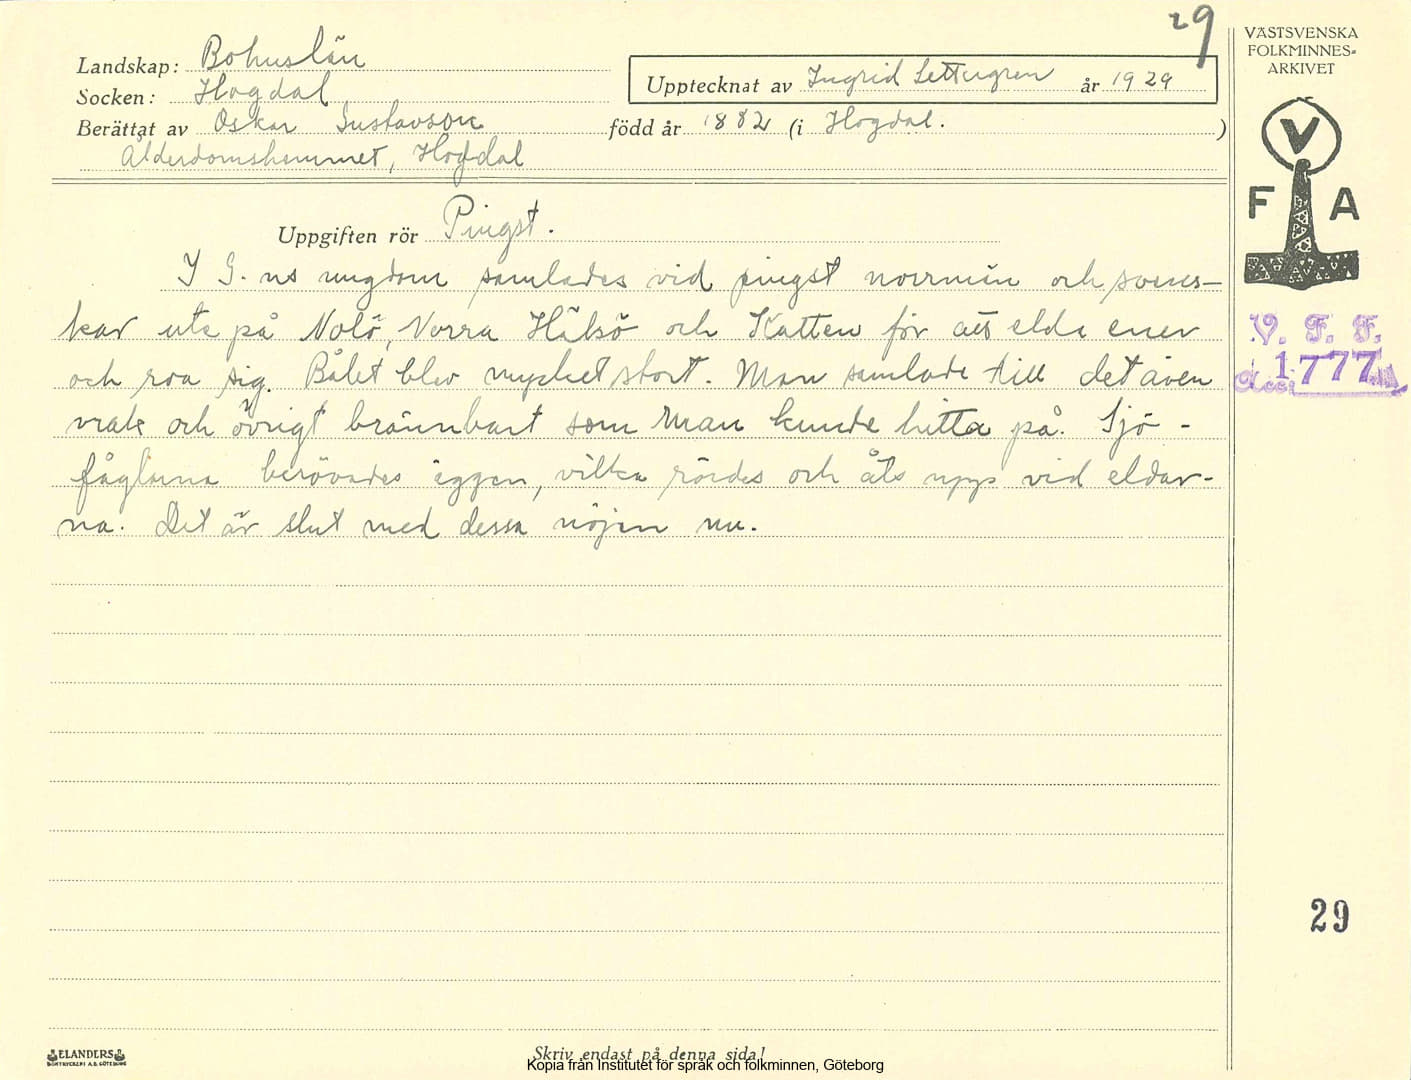 29
VÄSTSVENSKA
FOLKMINNES-
ARKIVET
Landskap: Bohuslän
Socken: Hogdal
Upptecknat av Ingrid Settergren år 1929
Berättat av Oskar Gustavson född år 1882 (i Hogdal. )
Ålderdomshemmet, Hogdal
V
F A
Uppgiften rör Pingst.
I G. ns ungdom samlades vid pingst norrmän och svens-
kar ute på Nolö, Norra Hälsö och Katten för att elda ener
och roa sig. Bålet blev mycket stort. Man samlade till det även
vrak och övrigt brännbart som man kunde hitta på. Sjö-
fåglarna berövades äggen, vilka rördes och åts upp vid eldar-
na. Det är slut med dessa nöjen nu.
V. F. F.
Acc. 1777
29
ELANDERS
BOKTRYCKERI A.B. GÖTEBORG
Skriv endast på denna sida!
Kopia från Institutet för språk och folkminnen, Göteborg